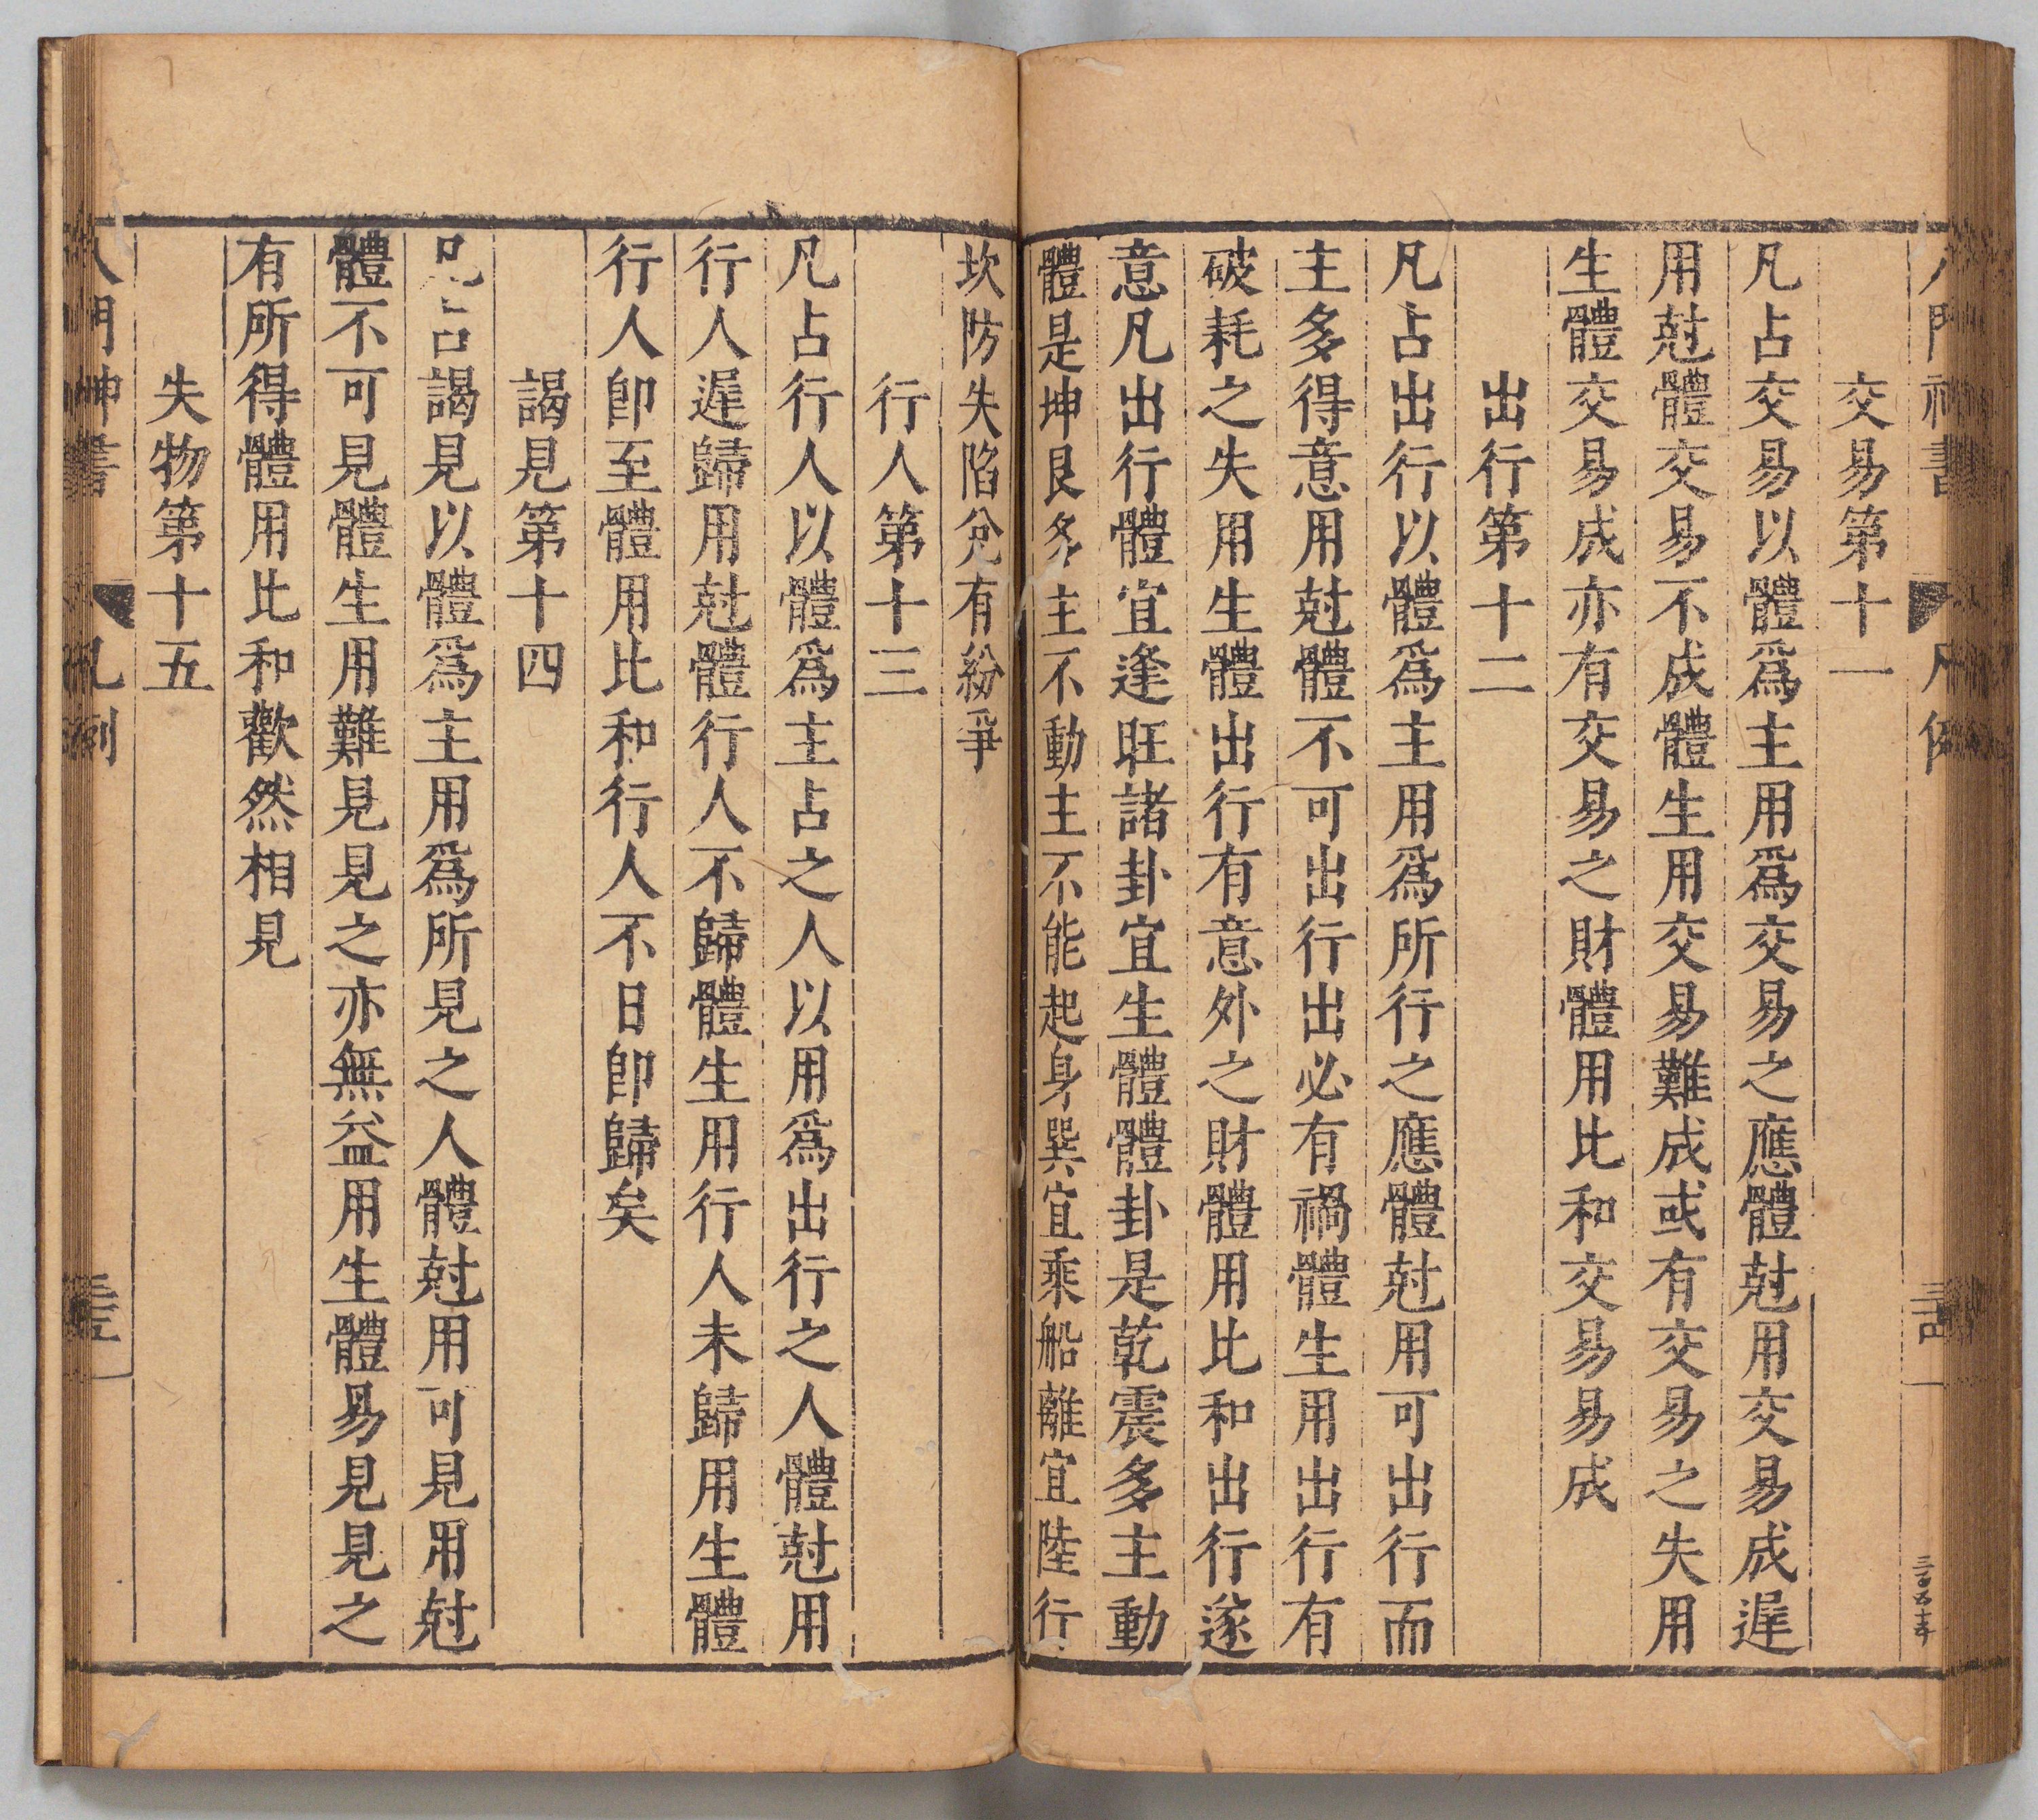 八門神書 凡例 三十四 三百五十年
交易第十一
凡占交易以體爲主用爲交易之應體尅用交易成遲
用尅體交易不成體生用交易難成或有交易之失用
生體交易成亦有交易之財體用比和交易易成
出行第十二
凡占出行以體爲主用爲所行之應體尅用可出行而
主多得意用尅體不可出行出必有禍體生用出行有
破耗之失用生體出行有意外之財體用比和出行遂
意凡出行體宜逢旺諸卦宜生體體卦是乾震多主動
體是坤艮多主不動主不能起身巽宜乘船離宜陸行
坎防失陷兌有紛爭
行人第十三
凡占行人以體爲主占之人以用爲出行之人體尅用
行人遲歸用尅體行人不歸體生用行人未歸用生體
行人卽至體用比和行人不日卽歸矣
謁見第十四
凡占謁見以體爲主用爲所見之人體尅用可見用尅
體不可見體生用難見見之亦無益用生體易見見之
有所得體用比和歡然相見
失物第十五
八門神書 凡例